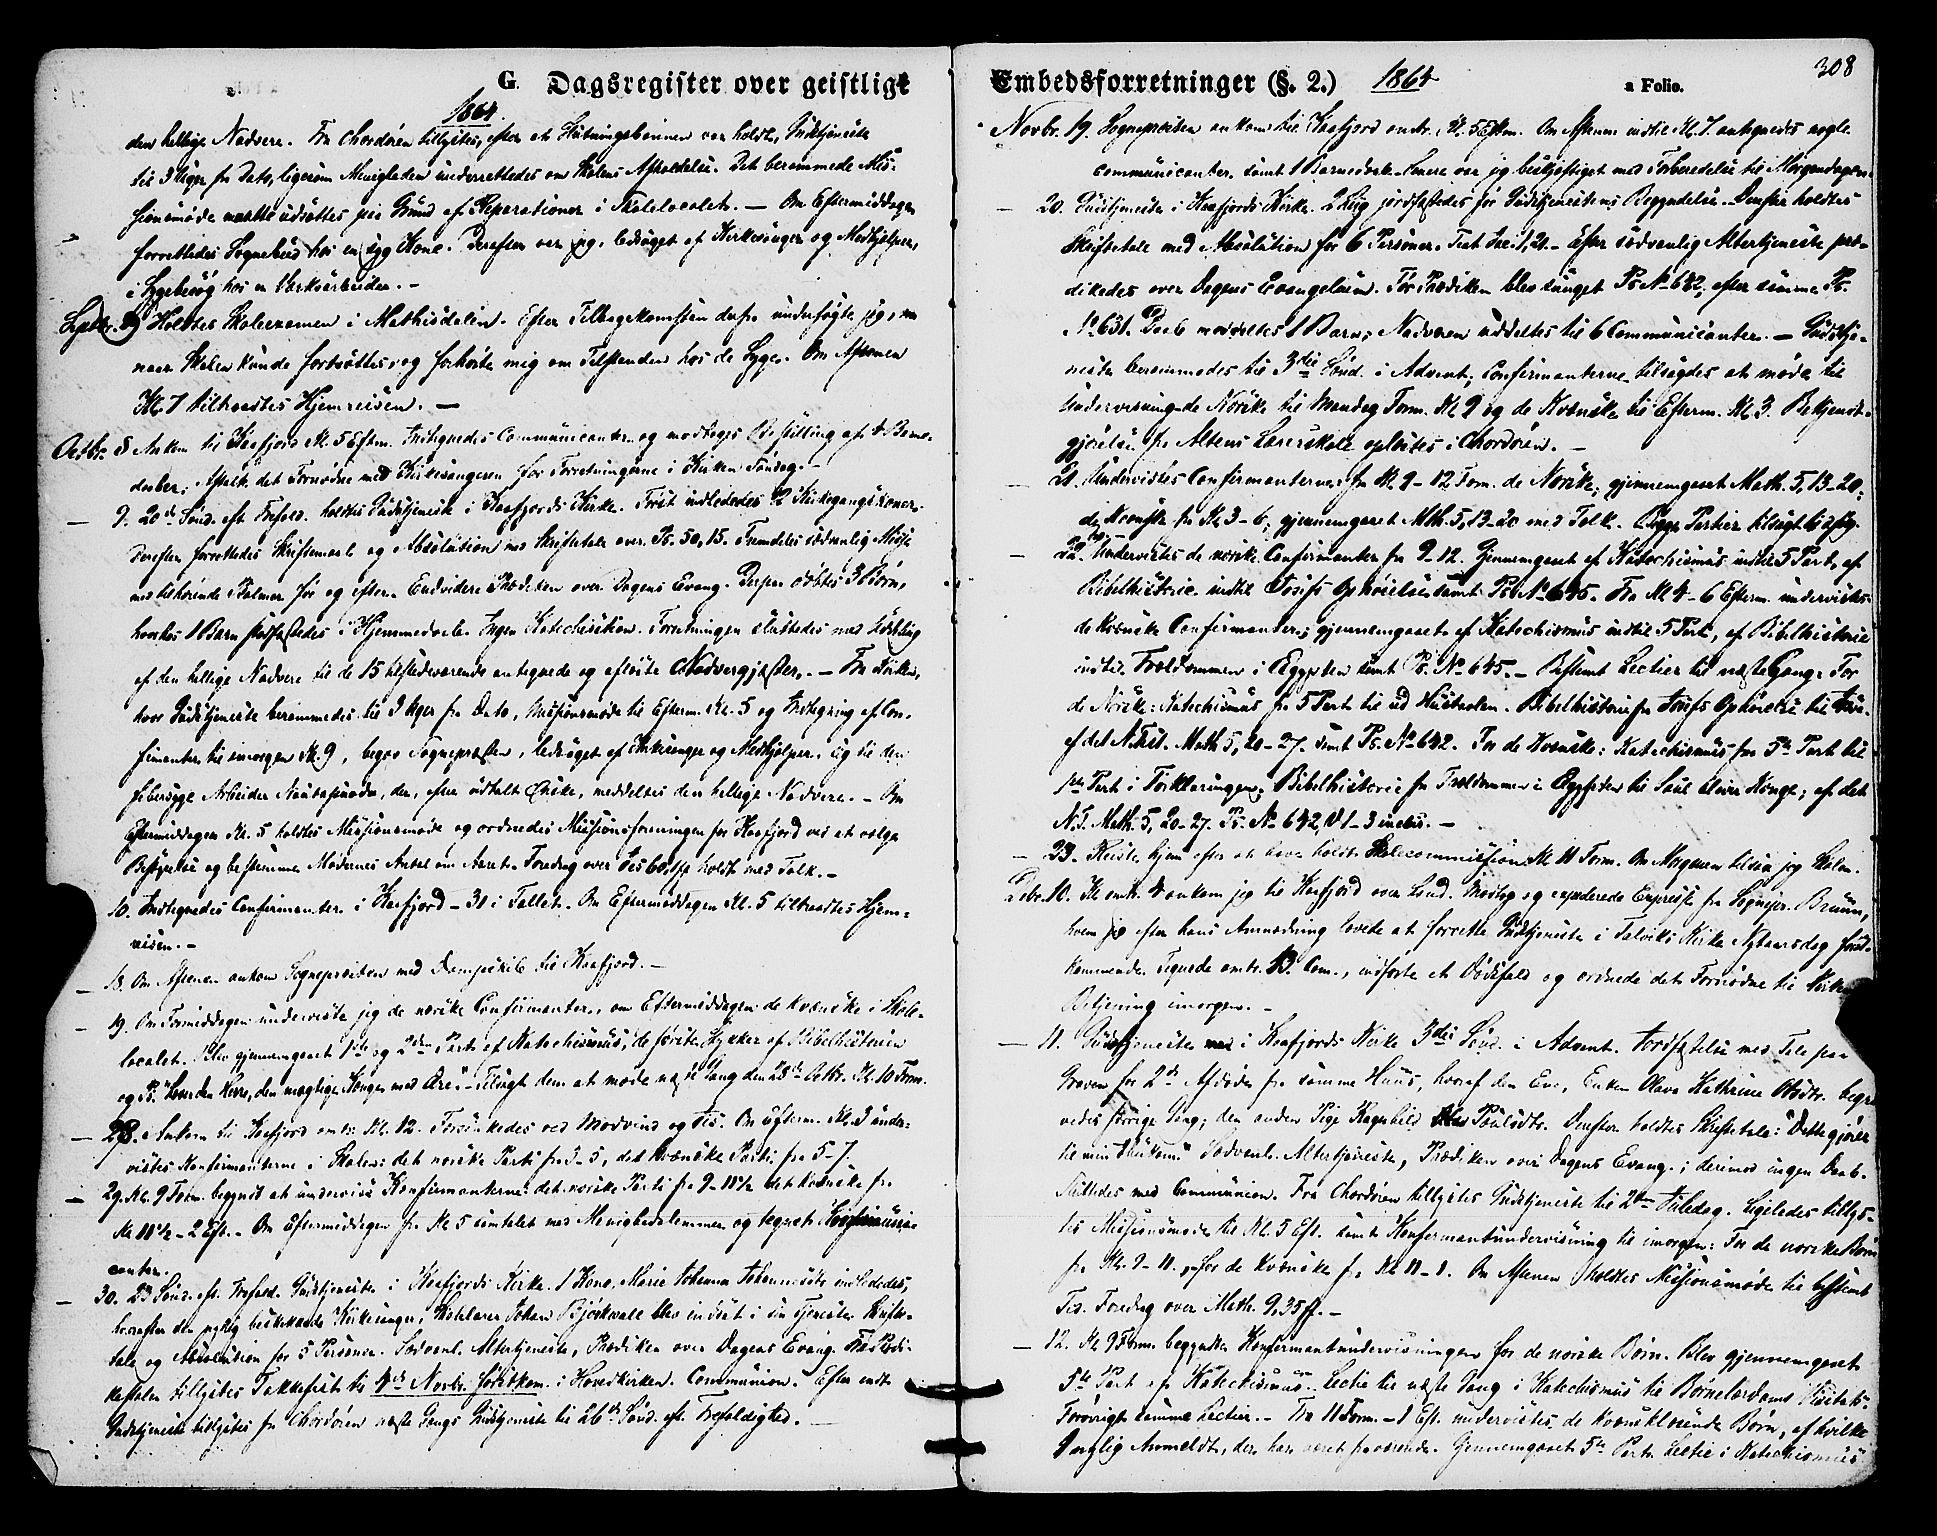 G. Dagsregister over geistlige
1864.
den hellige Nadvere. Fra Chordøren tillystes, efter at Slutningsbønnen var holdt, Gudstjeneste
til 3 Uger fra Dato, ligesom Menigheden underrettedes om Skolens Afholdelse. Det berammede Mis-
sionsmøde maatte udsættes paa Grund af Reparationer i Skolelocalet. — Om Eftermiddagen
forrettedes Sognebud hos en syg Kone. Derefter var jeg, ledsaget af Kirkesanger og Medhjelper,
i Sygebesøg hos en Værksarbeider. -
Septbr. Holdtes Skoleexamen i Mathisdalen. Efter Tilbagekomsten derfra undersøgte jeg, om
naar Skolen kunde fortsættes, og forhørte mig om Tilstanden hos de Syge. Om Aftenen
Kl. 7 tiltraadtes Hjemreisen. —
Octbr. 8 Ankom til Kaafjord Kl. 5 Eftm. Indtegnedes Communicanter og modtoges Bestilling af 4 Barne-
daaber; Aftalt det Fornødne med Kirkesangeren for Forretningerne i Kirken Søndag. -
— 9. 20de Sønd. eft. Trefold. holdtes Gudstjeneste i Kaafjords Kirke. Først indlededes 2 Kirkegangskoner.
Derefter forrettedes Skriftemaal og Absolution med Skriftetale over Ps. 50, 15. Fremdeles sædvanlig Messe
med tilhørende Psalmer før og efter. Endvidere Prædiken over Dagens Evang. Derpaa døbtes 3 Børn,
hvorhos 1 Barn stadfæstedes i Hjemmedaab. Ingen Katechisation. Forretningen sluttedes med Uddeling
af den hellige Nadvere til de 15 tilstedeværende antegnede og afløste Nadvergjæster. - Fra Kirken,
hvor Gudstjeneste berammedes til 3 Uger fra Dato, Missionsmøde til Efterm. Kl. 5 og Indtegning af Con-
firmanter til imorgen Kl. 9, begav Sognepræsten, ledsaget af Kirkesanger og Medhjelper, sig til den
febersyge Arbeider, der, efter udtalt Ønske, meddeltes den hellige Nadvere. - Om
Eftermiddagen Kl. 5 holdtes Missionsmøde og ordnedes Missionsforeningen for Kaafjord ved at vælge
Bestyrelse og bestemme Mødernes Antal om Aaret. Foredrag over Jes 60, holdt med Tolk. -
10. Indtegnedes Confirmanter i Kaafjord - 31 i Tallet. Om Eftermiddagen Kl. 5 tiltraadtes Hjem-
reisen. -
— 18. Om Aftenen ankom Sognepræsten med Dampskib til Kaafjord. -
— 19. Om Formiddagen underviste jeg de norske Confirmanter, om Eftermiddagen de kvænske i Skole-
localet. Blev gjennemgaaet 1ste og 2den Part af Katechismus, de første Stykker af Bibelhistorien
og Ps. "Lover den Herre, den mægtige Konge med Ære". - Tilsagt dem at møde næste Gang den 28de Octbr. Kl. 10 Form.
— 28. Ankom til Kaafjord omtr. Kl. 12. Forsinkedes ved Modvind og Iis. Om Efterm. Kl. 3 under-
vistes Konfirmanterne i Skolen: det norske Parti fra 3 - 5, det kvænske Parti fra 5 - 7.
— 29. Kl. 9 Form. begyndt at undervise Konfirmanterne: det norske Parti fra 9 - 11½ det kvænske fra
Kl 11½ - 2 Eft. - Om Eftermiddagen fra Kl 5 samtalet med Menighedslemmer og tegnet Kommuni-
canter.
— 30. 23 Sønd. eft. Trefold. Gudstjeneste i Kaafjords Kirke. 1 Kone, Marie Johanna Johannesdtr indlededes,
hvorefter den nylig beskikkede Kirkesanger, Skolelærer Johan Bjørkvald blev indsat i sin Tjeneste. Skrifte-
tale og Absolution for 5 Personer. Sædvanl. Altertjeneste, Prædiken over Dagens Evang. Fra Prædi-
kestolen tillystes Takkefest til 4de Novbr. førstkom. i Hovedkirken. Communion. Efter endt
Gudstjeneste tillystes fra Chordøren næste Gangs Gudstjeneste til 26de Sønd. eft. Trefoldighed. —
Embedsforretninger (§. 2.) 1864
a Folio. 308
Novbr. 19. Sognepræsten ankom til Kaafjord omtr. Kl. 5 Eftm. Om Aftenen indtil Kl. 7 antegnedes nogle
communicanter, samt 1 Barnedaab. Senere var jeg beskjæftiget med Forberedelse til Morgendagen.
— 20. Gudstjeneste i Kaafjords Kirke. 2 Liig jordfæstedes før Gudstjenestens Begyndelse. Derefter holdtes
Skriftetale med Absolution for 6 Personer. Text Jac. 1, 21. - Efter sædvanlig Altertjeneste præ-
dikedes over Dagens Evangelium. Før Prædiken blev sunget Ps No 642, efter samme Ps.
No 631. Daab meddeltes 1 Barn; Nadveren uddeltes til 6 Communicanter. — Gudstje-
neste berammedes til 3die Sønd. i Advent; Confirmanterne tilsagdes at møde til
Undervisning - de Norske til Mandag Form. Kl 9 og de Kvænske til Efterm. Kl 3. Bekjendt-
gjørelse fra Altens Lærerskole oplæstes i Chordøren. -
— 21. Undervistes Confirmanterne: fra Kl. 9 - 12 Form. de Norske; gjennemgaaet Math. 5, 13-20;
de Kvænske fra Kl 3 - 6; gjennemgaaet Mth. 5, 13-20 med Tolk. Begge Partier tilsagt
— 22. Undervistes de norske Confirmanter fra 9 - 12. Gjennemgaaet af Katechismus indtil 5 Part, af
Bibelhistorie indtil Josefs Ophøielse samt Ps No 645. Fra Kl 4 - 6 Efterm. undervistes
de kvænske Confirmanter; gjennemgaaet af Katechismus indtil 5 Part, af Bibelhistorie
indtil Trældommen i Ægypten samt Ps. No 645. - Bestemt Lectier til næste Gang: For
de Norske: Katechismus fra 5 Part til ud Hustavlen. Bibelhistorie fra Josefs Ophøielse til
af det N. Test. Math 5, 20-27. samt Ps. No 642. For de Kvænske: Katechismus fra 5te Part til
1ste Part i Forklaringen; Bibelhistorie fra Trældommen i Ægypten til Saul bliver Konge; af det
N. T. Math. 5, 20-27. Ps. No 642, V 1-3 inclus. —
— 23. Reiste hjem efter at have holdt Skolecommission Kl 11 Form. Om Morgenen tilsaa jeg Skolen.
Debr. 10. Kl omtr. 4 ankom jeg til Kaafjord over Land. Modtog og expederede Expresse fra Sognepr. Bruun,
hvem jeg efter hans Anmodning lovede at forrette Gudstjeneste i Talviks Kirke Nytaarsdag først-
kommende. Tegnede omtr. 13 Com., indførte et Dødsfald og ordnede det Fornødne til Kirkens
Betjening imorgen. -
— 11. Gudstjeneste i Kaafjords Kirke 3die Sønd. i Advent. Jordfæstelse med Tale paa
Graven for 2de Afdøde fra samme Huus, hvoraf den Ene, Enken Olava Kathrine begra-
vedes forrige Gang; den anden Pige Ragnhild Poulsdtr. Derefter holdtes Skriftetale: "Dette gjører
til min Ihukom." Sædvanl. Altertjeneste, Prædiken over Dagens Evang.; derimod ingen Daab.
Sluttedes med Communion. Fra Chordøren tillystes Gudstjeneste til 2den Juledag. Ligeledes tillys-
tes Missionsmøde til Kl. 5 Eft. samt Konfirmantundervisning til imorgen: For de norske Børn
fra Kl. 9-11, for de kvænske fra Kl 11-1. Om Aftenen holdtes Missionsmøde til bestemt
Tid. Foredrag over Math. 9, 35 ff. -
— 12. Kl 9 Form. begyndte Konfirmantundervisningen for de norske Børn. Blev gjennemgaaet
5te Part af Katechismus. Lectie til næste Gang i Katechismus til Børnelærdoms
Forøvrigt samme Lectier. - Fra 11 Form. - 1 Eft. undervistes de kvænsktalende Børn, af hvilke
Anmeldt, der har været fraværende. Gjennemgaaet 5te Part. Lectie i Katechismus